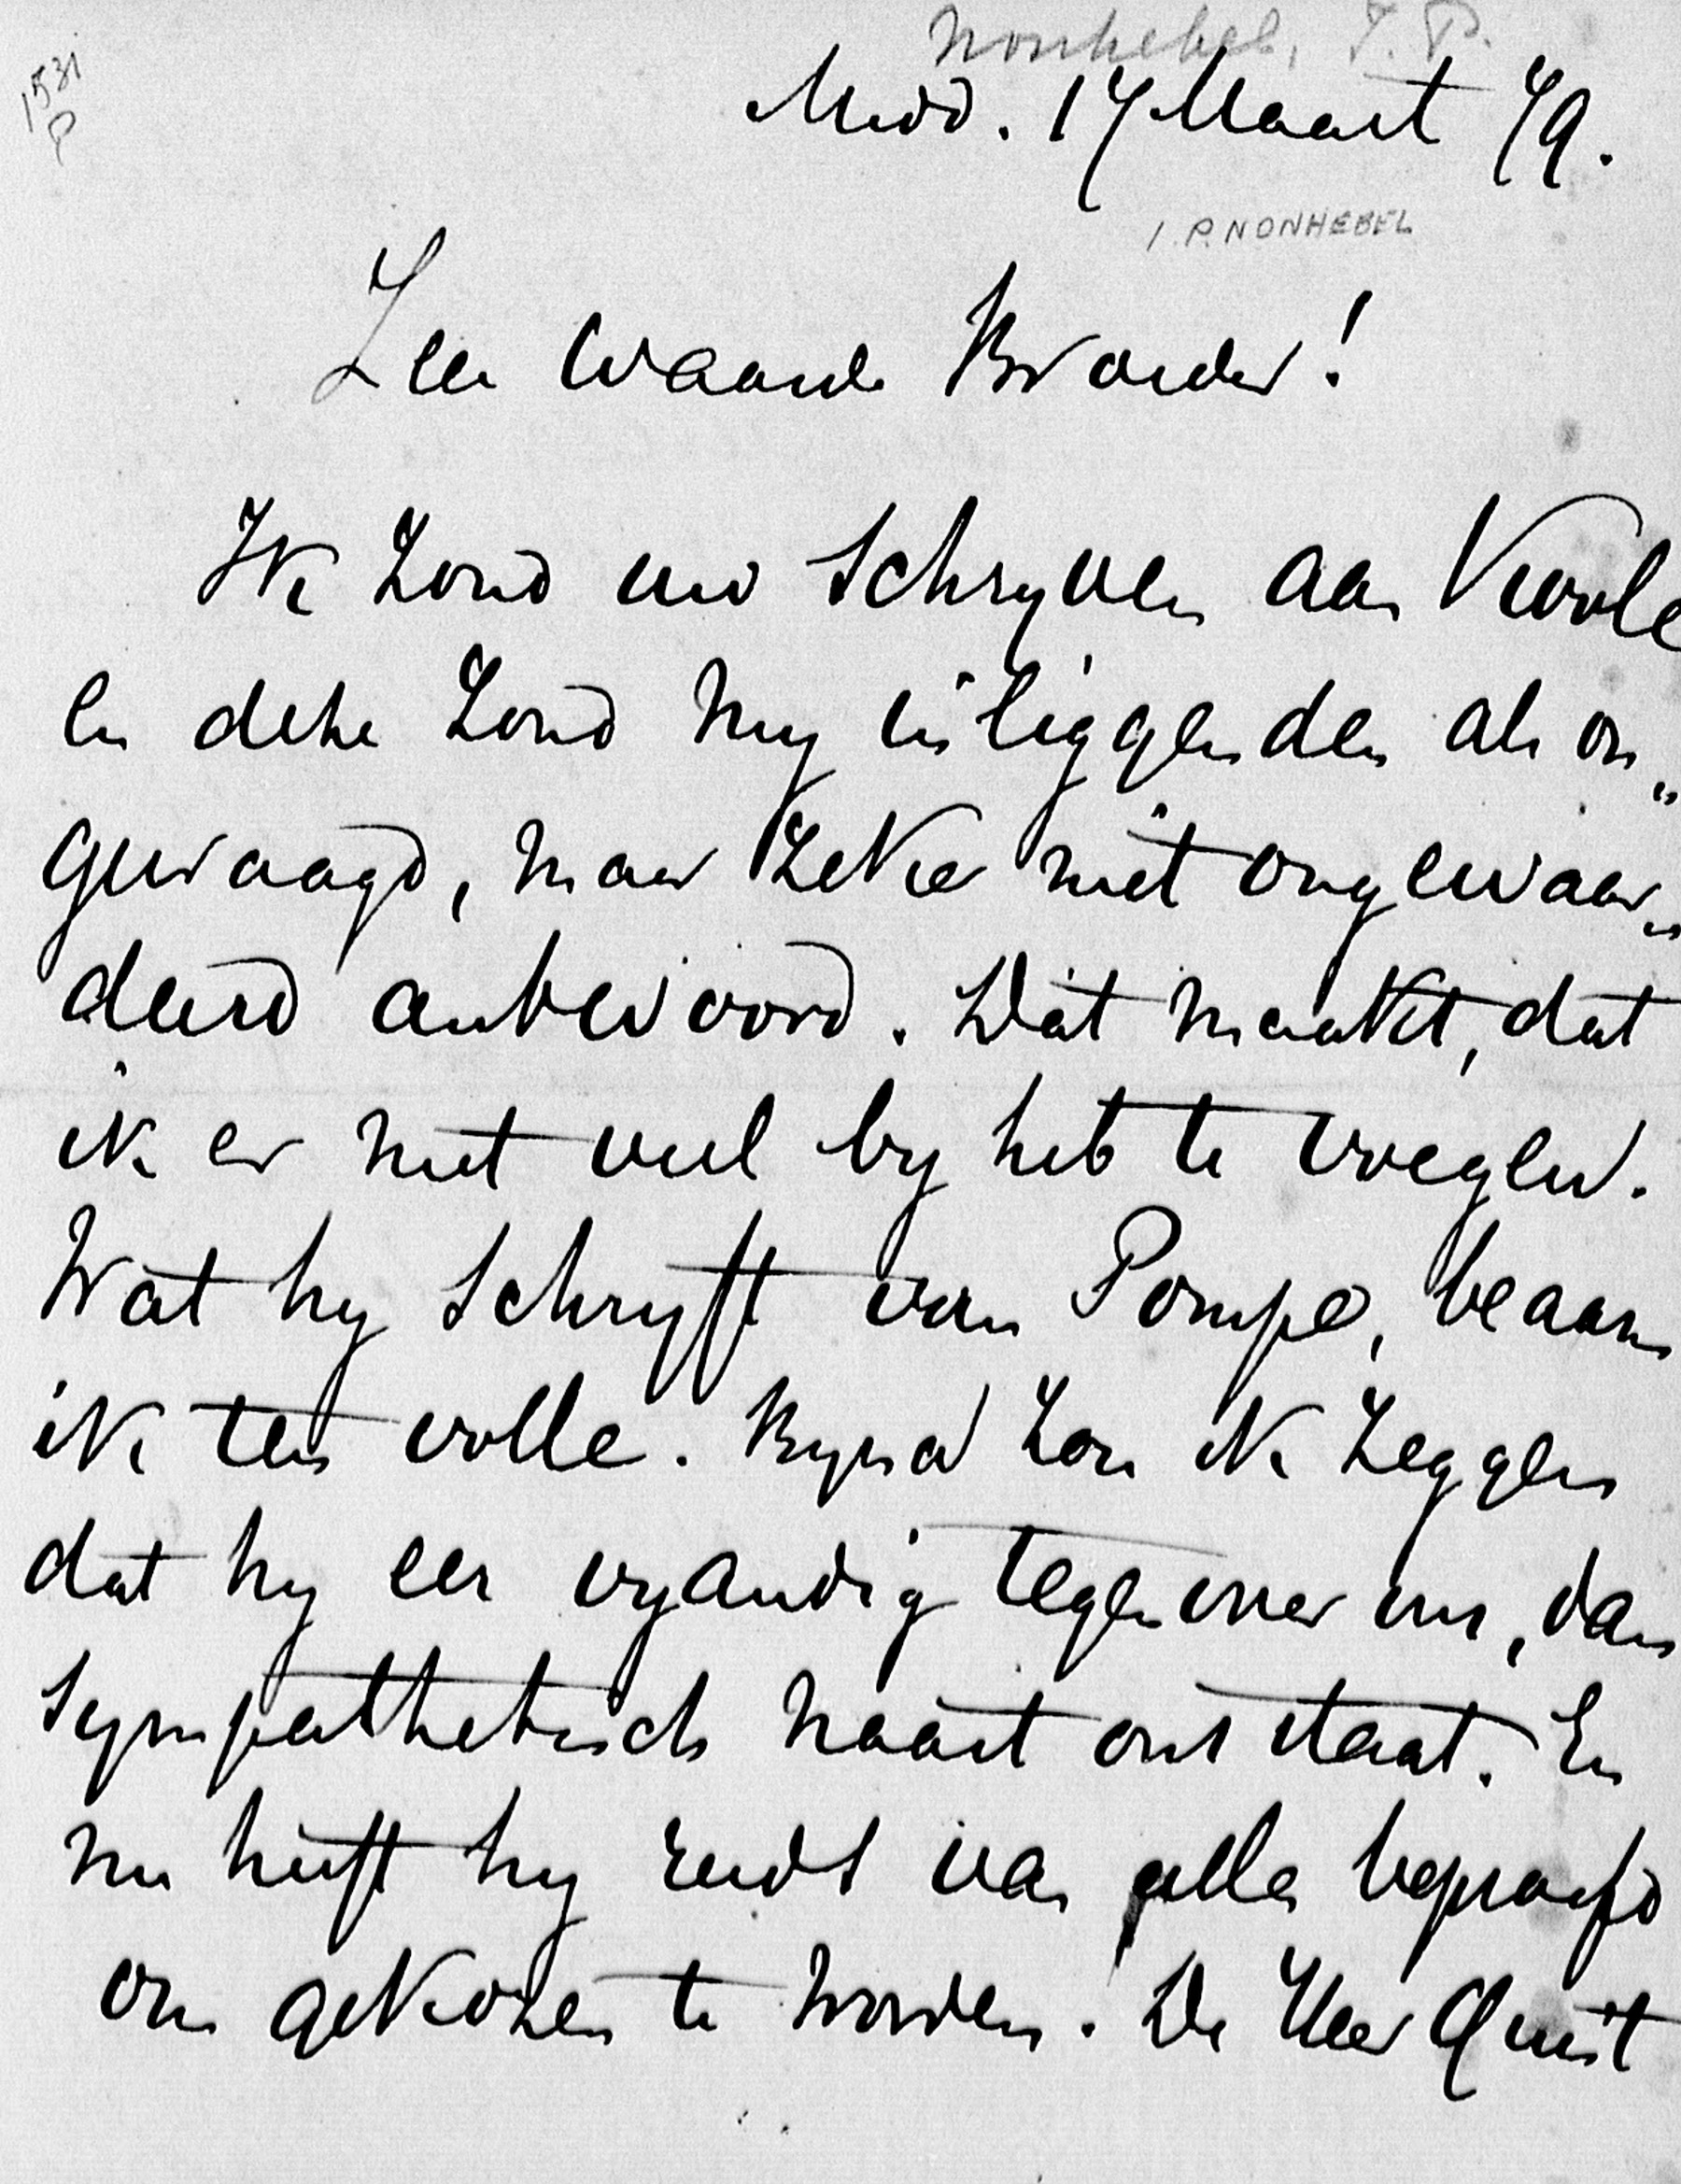 Nonhebel, I. P.
1531
P
Midd. 17 Maart 79.
I. P. NONHEBEL
Zeer Waarde Broeder!
Ik zond uw schryven aan
en deze zond my inliggenden als on„
gevraagd, maar zeker niet ongewaar„
deerd antwoord. Dat maakt, dat
ik er niet veel by heb te voegen.
Wat hy schryft van Pompe, beaam
ik ten volle. Byna zou ik zeggen
dat hy eer vyandig tegenover ons, dan
sympathetisch naast ons staat. En
nu heeft hy reeds van alles beproefd
om gekozen te worden. De Heer Quist